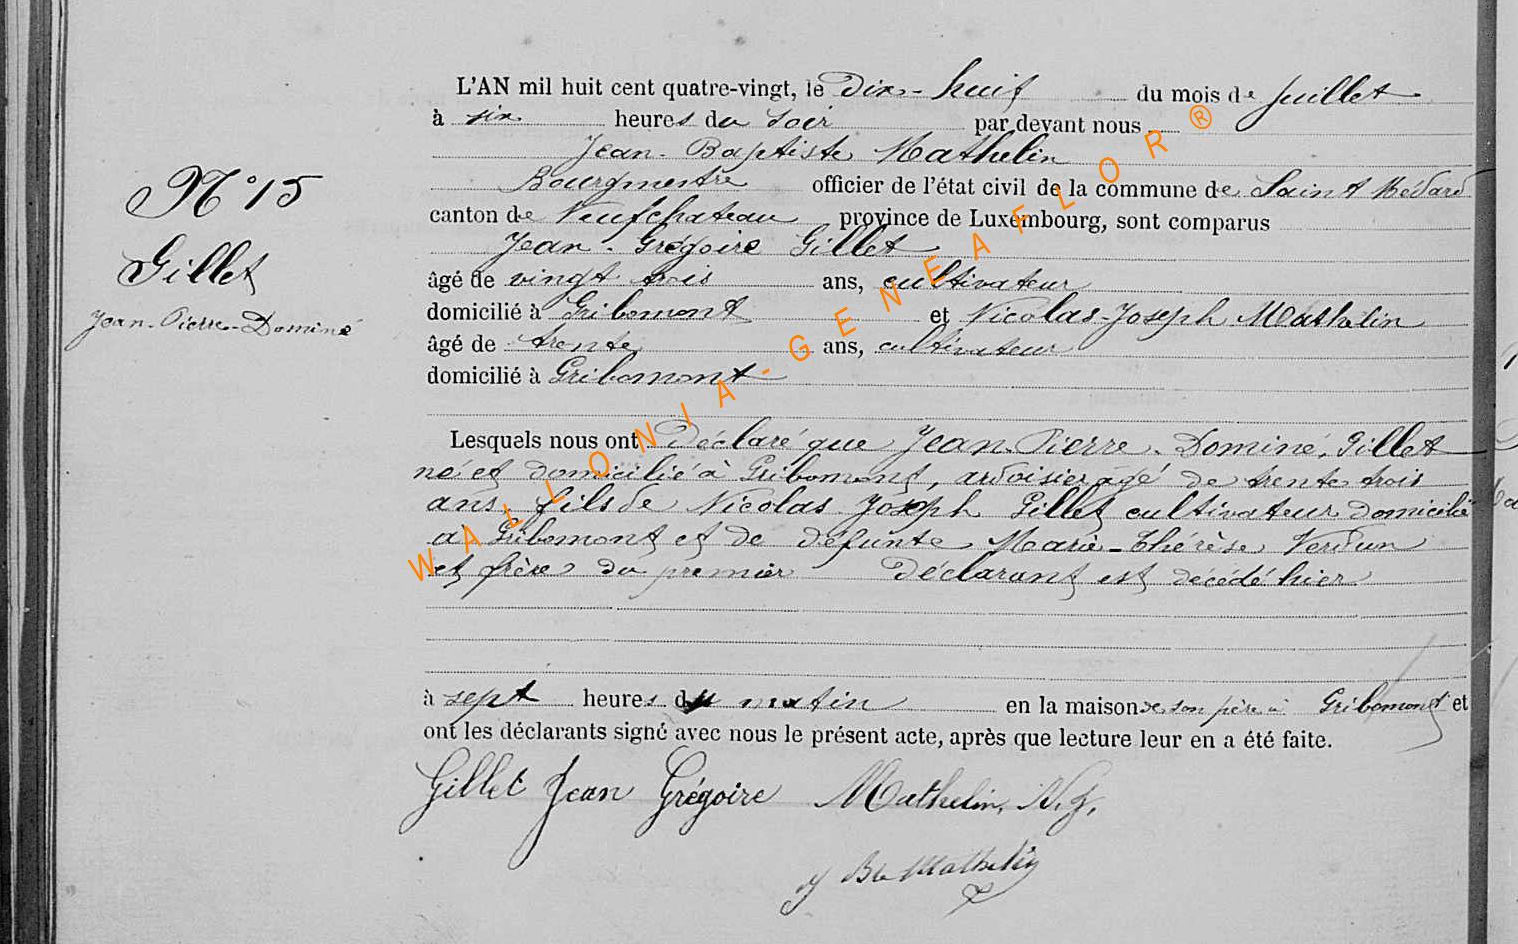 L'AN mil huit cent quatre-vingt, le Dix-huit du mois de Juillet
à six heures du Soir par devant nous
Jean-Baptiste Mathelin
Bourgmestre officier de l'état civil de la commune de Saint Medard
canton de Neufchateau province de Luxembourg, sont comparus
Jean-Grégoire Gillet
âgé de vingt trois ans, cultivateur
domicilié à Gribomont et Nicolas-Joseph Mathelin
âgé de trente ans, cultivateur
domicilié à Gribomont
N° 15
Gillet
Jean-Pierre-Dominé
Lesquels nous ont Déclaré que Jean-Pierre-Dominé Gillet
né et domicilié à Gribomont, ardoisier âgé de trente trois
ans, fils de Nicolas Joseph Gillet cultivateur domicilié
à Gribomont et de défunte Marie-Thérèse Verdun
et frère du premier Déclarant est décédé hier
à sept heures du matin en la maison de son père à Gribomont et
ont les déclarants signé avec nous le présent acte, après que lecture leur en a été faite.
Gillet Jean Grégoire Mathelin, N.J.
J Bte Mathelin
WALLONIA-GENEAFLOR®